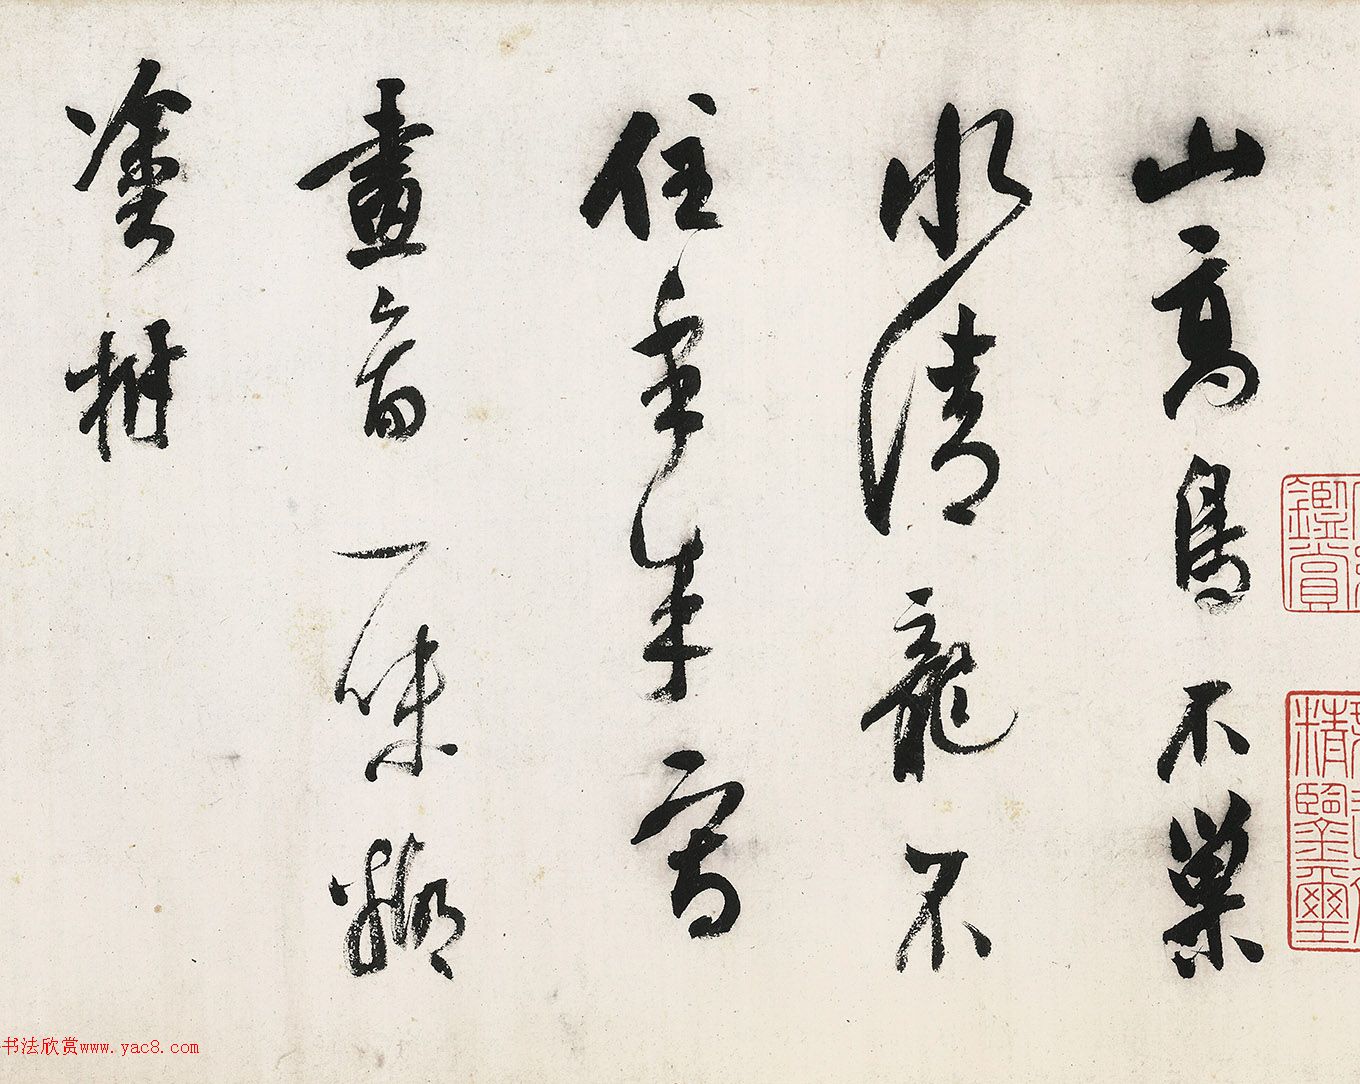 鑑賞
精鑒璽
山高鳥不巢
水清龍不
住年寫
畫看一味糊
塗樹
书法欣赏www.yac8.com